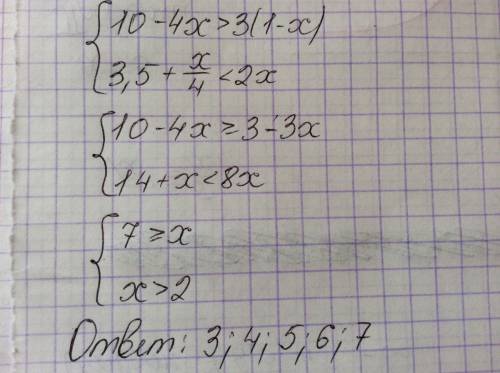 10 - 4x > 3(1-x)
3,5 + x/4 < 2x
10 - 4x ≥ 3 - 3x
14 + x < 8x
7 ≥ x
x > 2
Ответ: 3; 4; 5; 6; 7